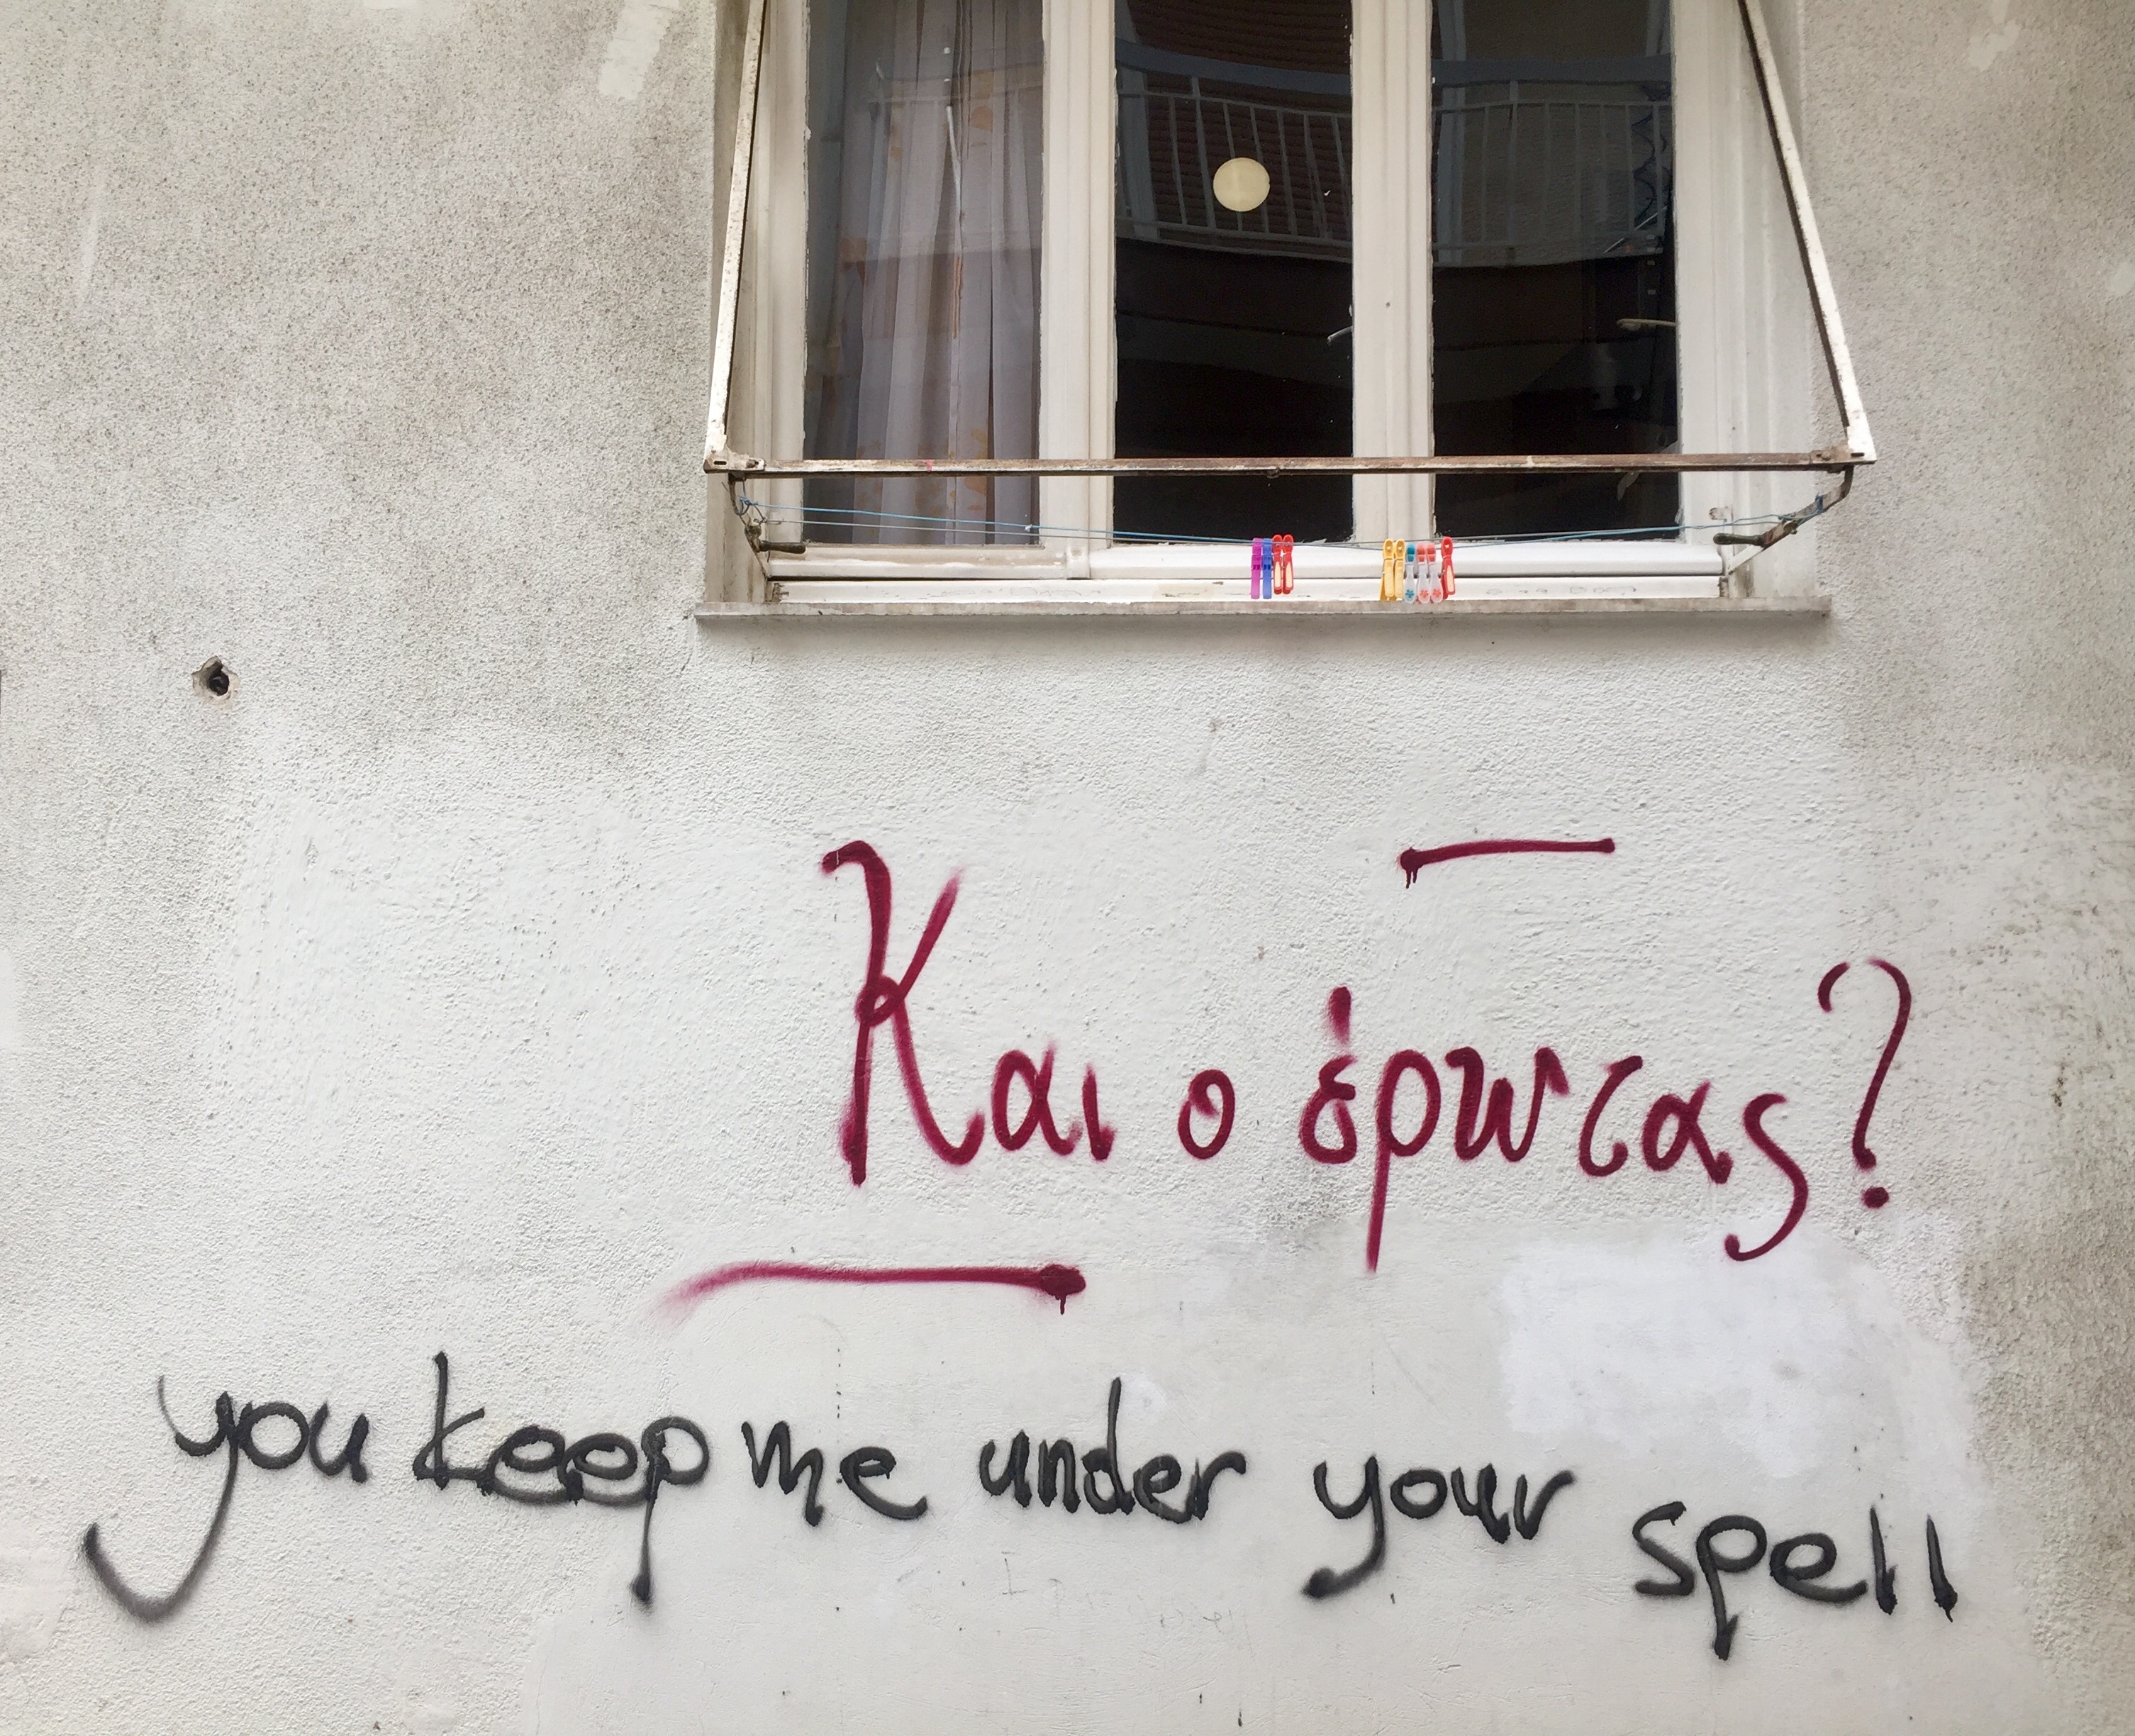 Και ο έρωτας?
you keep me under your spell